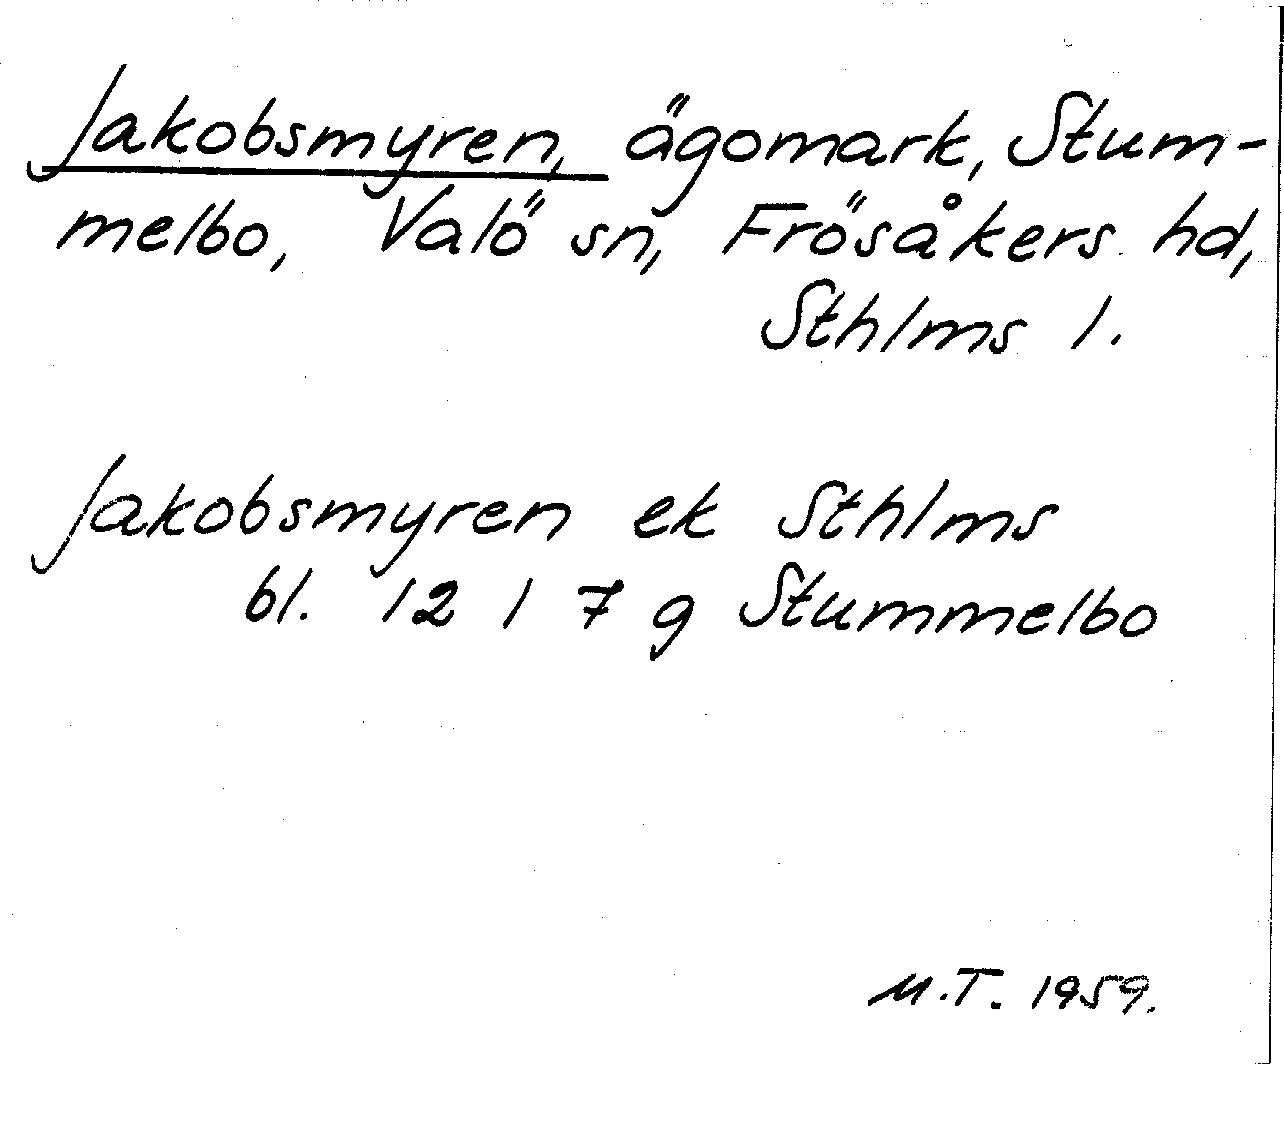 Jakobsmyren, ägomark, Stum-
melbo, Valö sn, Frösåkers hd,
Sthlms l.
Jakobsmyren ek Sthlms
bl. 12 1 7 g Stummelbo
M.T. 1959.